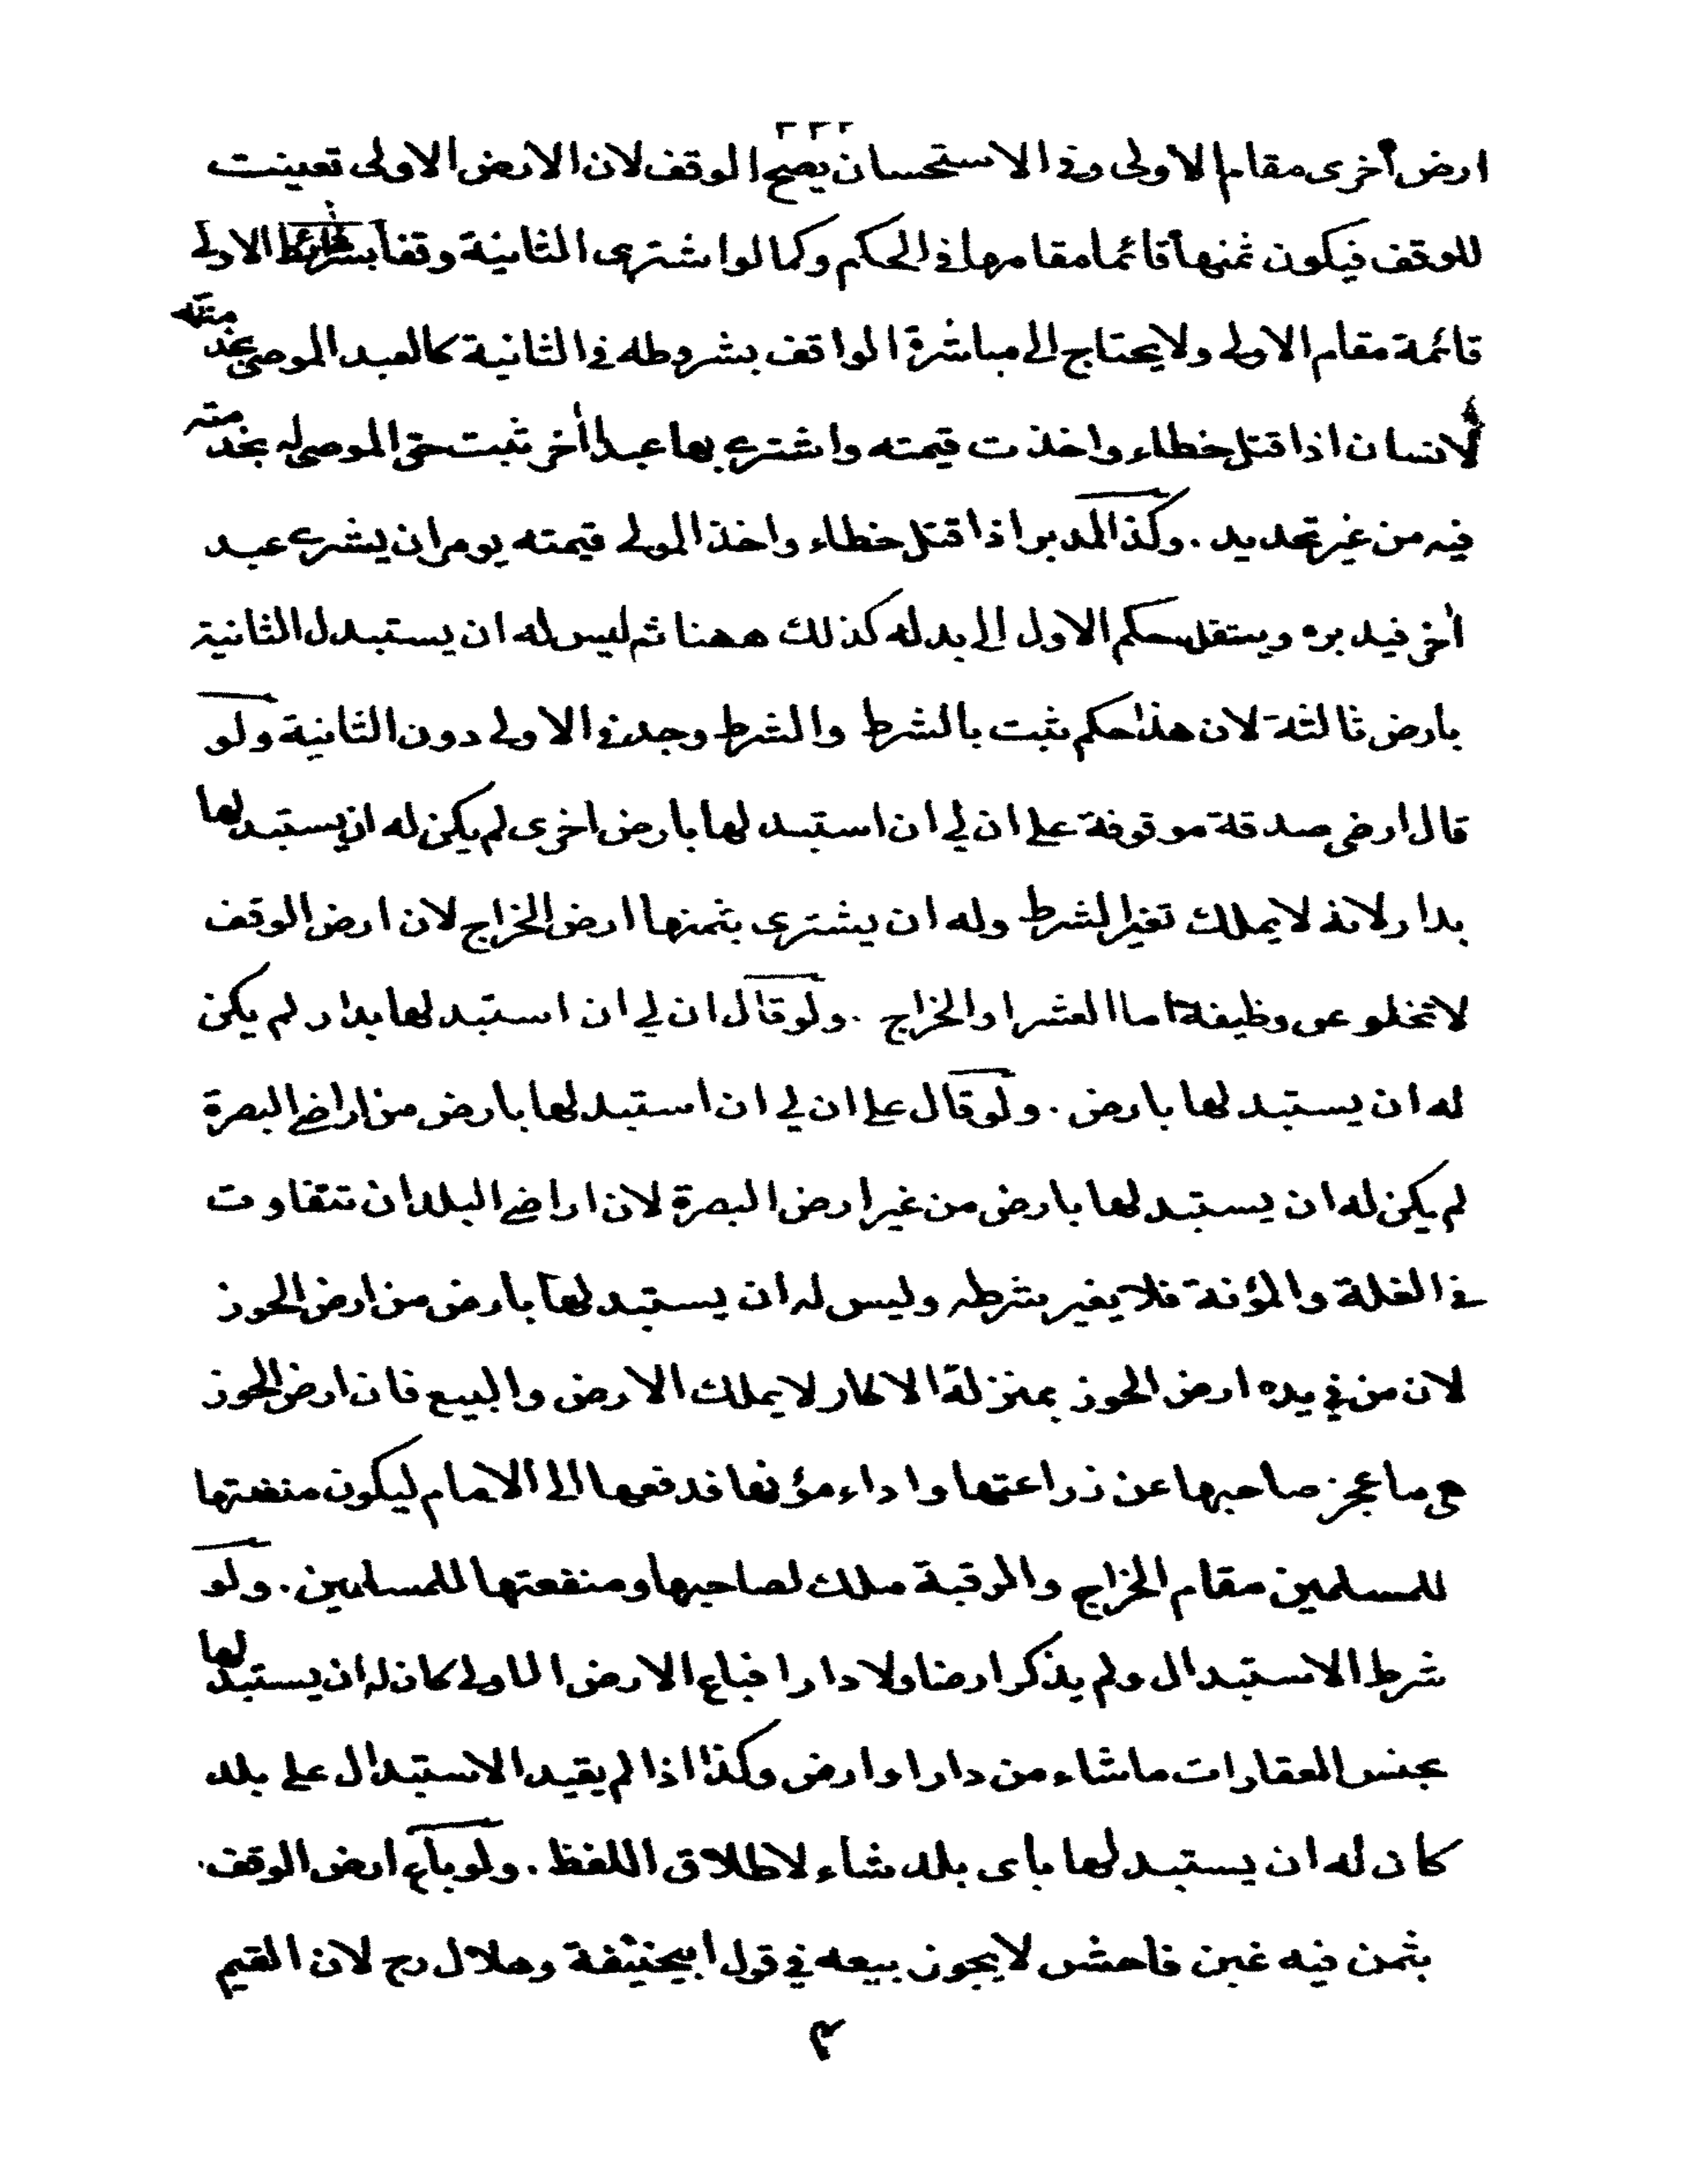 ارض أخرى مقام الأولى وفى الاستحسان يصح الوقف لان الارض الاولى تعينت
للوقف فيكون ثمنها قائما مقامها فى الحكم وكما لو اشترى الثانية وقفا بشرائط الاولى
قائمة مقام الاولى ولا يحتاج الى مباشرة الواقف بشروطه فى الثانية كالعبد الموصى بخدمته
لانسان اذا قتل خطاء واخذت قيمته واشترى بها عبدا أخر ثبت حق الموصى له بخدمته
فيه من غير تحديد . وكذا المدبر اذا قتل خطاء واخذ المولى قيمته يومر ان يشترى عبد
أخر فيدبره وينتقل حكم الاول الى بدله كذلك ههنا ثم ليس له ان يستبدل الثانية
بارض ثالثة لان هذا حكم ثبت بالشرط والشرط وجد فى الاولى دون الثانية ولو
قال ارضى صدقة موقوفة على ان لى ان استبدلها بارض اخرى لم يكن له ان يستبدلها
بدار لانه لا يملك تغير الشرط وله ان يشترى بثمنها ارض الخراج لان ارض الوقف
لا تخلو عن وظيفة اما العشر او الخراج . ولو قال ان لى ان استبدلها بدار لم يكن
له ان يستبدلها بارض . ولو قال على ان لى ان استبدلها بارض من اراضى البصرة
لم يكن له ان يستبدلها بارض من غير ارض البصرة لان اراضى البلدان تتفاوت
فى الغلة والمؤنة فلا يغير شرطه وليس له ان يستبدلها بارض من ارض الحوز
لان من في يده ارض الحوز بمنزلة الاكار لا يملك الارض والبيع فان ارض الحوز
هى ما عجز صاحبها عن زراعتها واداء مؤنها فدفعها الى الامام ليكون منفعتها
للمسلمين مقام الخراج والرقبة ملك لصاحبها ومنفعتها للمسلمين . ولو
شرط الاستبدال ولم يذكر ارضا ولا دارا فباع الارض الاولى كان له ان يستبدلها
بجنس العقارات ماشاء من دار او ارض وكذا اذا لم يقيد الاستبدال على بلد
كان له ان يستبدلها باى بلد شاء لاطلاق اللفظ . ولو باع ارض الوقف
بثمن فيه غبن فاحش لا يجوز بيعه في قول ابيحنيفة وهلال رح لان القيم